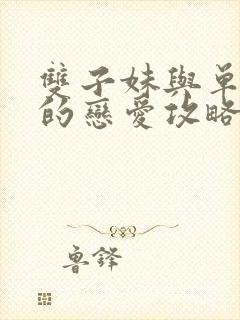 雙子妹與單
的戀愛攻略
魯鋒